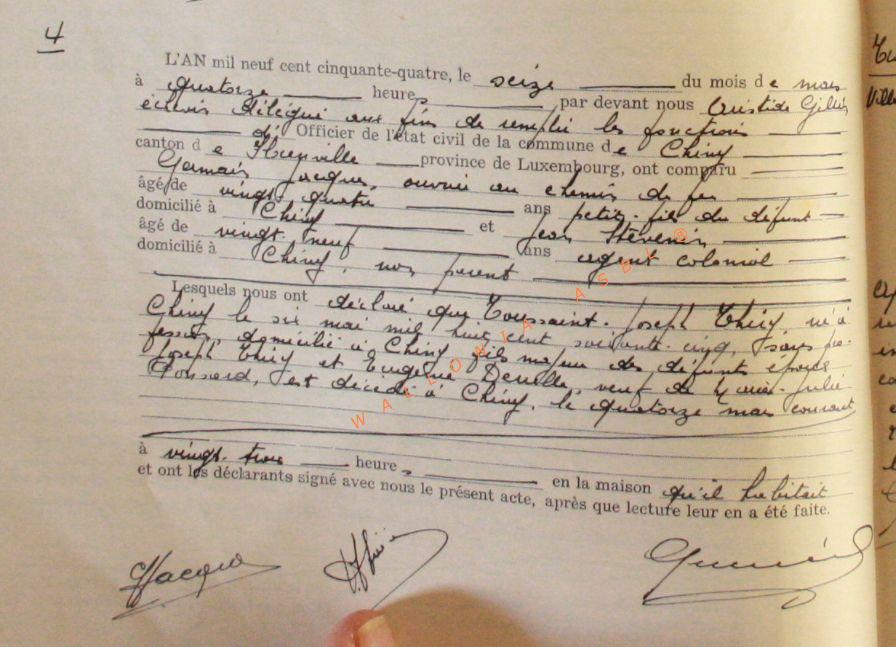 4
L'AN mil neuf cent cinquante-quatre, le seize du mois de mars
à quatorze heures par devant nous Aristide Gillis
échevin délégué aux fins de remplir les fonctions
d' Officier de l'état civil de la commune de Chiny
canton de Florenville province de Luxembourg, ont comparu
Germain Jacques, ouvrier au chemin de fer
âgé de vingt-quatre ans petit-fils du défunt
domicilié à Chiny et Jean Stévenin
âgé de vingt-neuf ans agent colonial
domicilié à Chiny, non parent
Lesquels nous ont déclaré que Toussaint-Joseph Thiry, né à
Chiny le six mai mil huit cent soixante-cinq, sans pro-
fession, domicilié à Chiny, fils majeur des défunts époux
Joseph Thiry et Eugénie, veuf de Marie-Julie
est décédé à Chiny, le quatorze mars courant
à vingt-trois heures en la maison qu'il habitait
et ont les déclarants signé avec nous le présent acte, après que lecture leur en a été faite.
GJacques
WALLONIA ASBL ®